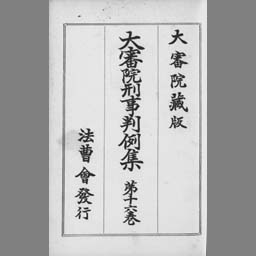 大審院藏版
大審院刑事判例集 第十六卷
法曹會發行